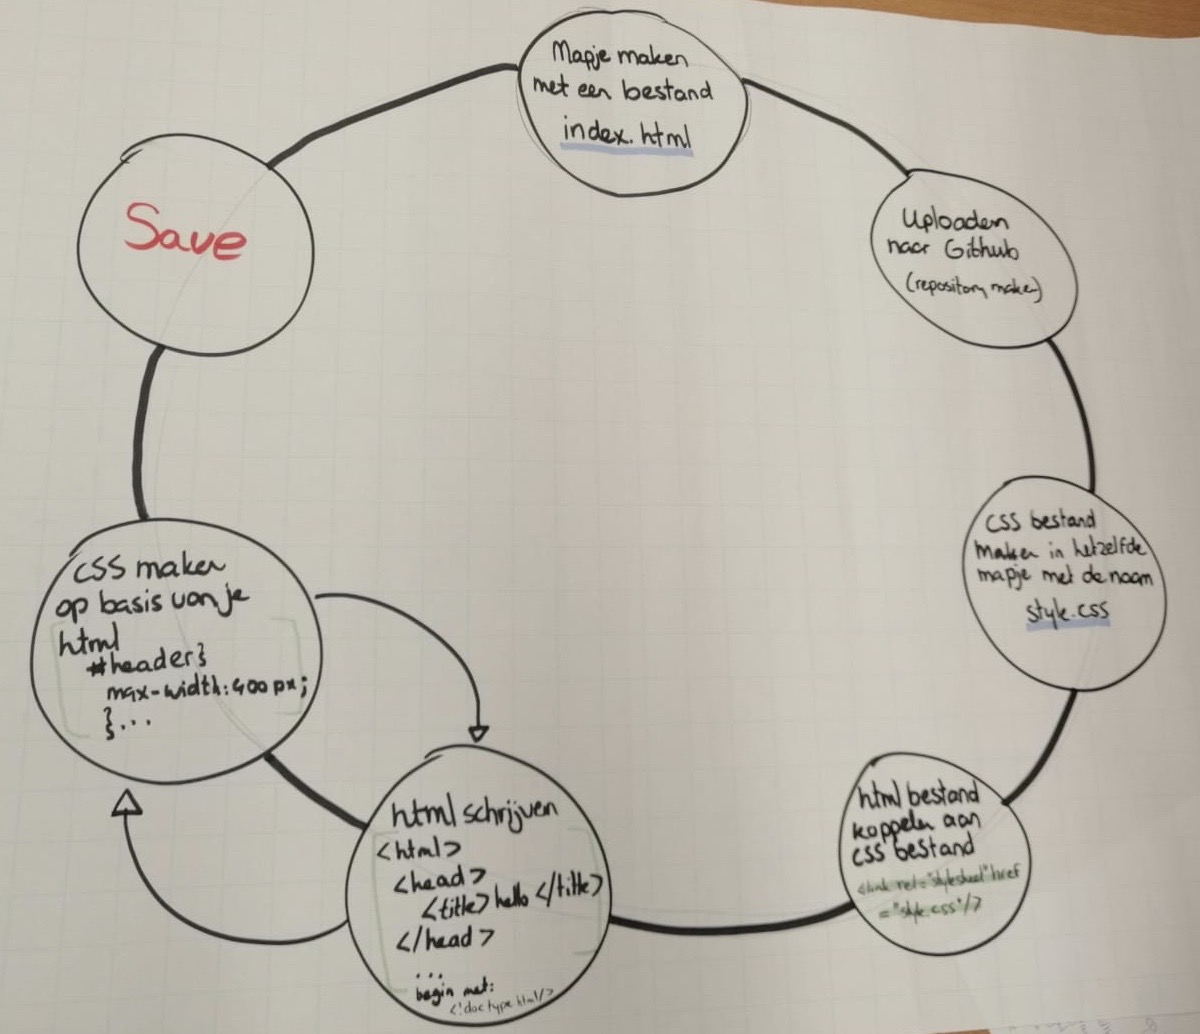 Mapje maken
met een bestand
index.html
Uploaden
naar Github
(repository maken)
CSS bestand
maken in hetzelfde
mapje met de naam
style.css
html bestand
koppelen aan
css bestand
<link rel="stylesheet" href
="style.css"/>
html schrijven
<html>
<head>
<title> hello </title>
</head>
...
begin met:
<!doctype html/>
CSS maken
op basis van je
html
#header{
max-width: 400px;
}...
Save